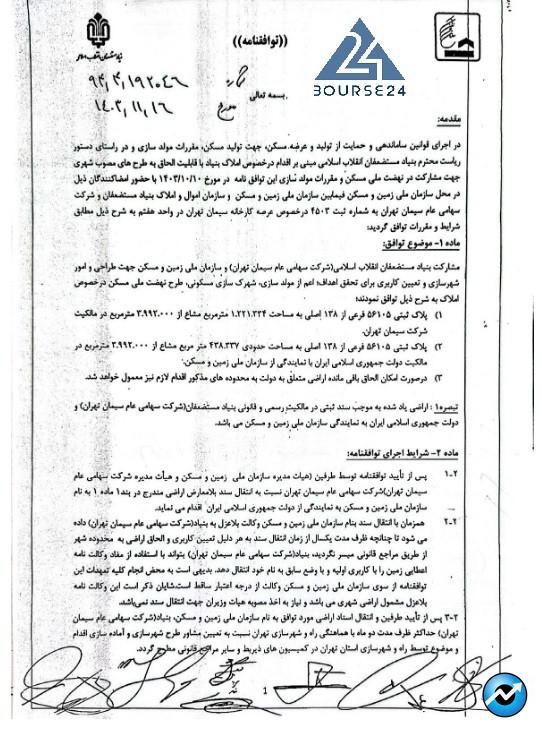 ((توافقنامه))
BOURSE24
بسمه تعالی
۱۴۰۳/۱۱/۱۶
مقدمه:
در اجرای قوانین ساماندهی و حمایت از تولید و عرضه مسکن، جهت تولید مسکن، مقررات مولد سازی و در راستای دستور
ریاست محترم بنیاد مستضعفان انقلاب اسلامی مبنی بر اقدام درخصوص املاک بنیاد با قابلیت الحاق به طرح های مصوب شهری
جهت مشارکت در نهضت ملی مسکن و مقررات مولد سازی این توافق نامه در مورخ ۱۴۰۳/۱۰/۱۰ با حضور امضاکنندگان ذیل
در محل سازمان ملی زمین و مسکن فیمابین سازمان ملی زمین و مسکن و سازمان اموال و املاک بنیاد مستضعفان و شرکت
سهامی عام سیمان تهران به شماره ثبت ۴۵۰۳ درخصوص عرصه کارخانه سیمان تهران در واحد هفتم به شرح ذیل مطابق
شرایط و مقررات توافق گردید:
ماده ۱- موضوع توافق:
مشارکت بنیاد مستضعفان انقلاب اسلامی(شرکت سهامی عام سیمان تهران) و سازمان ملی زمین و مسکن جهت طراحی و امور
شهرسازی و تعیین کاربری برای تحقق اهداف؛ اعم از مولد سازی، شهرک سازی مسکونی، طرح نهضت ملی مسکن درخصوص
املاک به شرح ذیل توافق نمودند:
۱) پلاک ثبتی ۵۶۱۰۵ فرعی از ۱۳۸ اصلی به مساحت ۱.۲۲۱.۳۲۴ مترمربع مشاع از ۳.۹۹۲.۰۰۰ مترمربع در مالکیت
شرکت سیمان تهران.
۲) پلاک ثبتی ۵۶۱۰۵ فرعی از ۱۳۸ اصلی به مساحت حدودی ۴۳۸.۳۳۷ متر مربع مشاع از ۳.۹۹۲.۰۰۰ مترمربع در
مالکیت دولت جمهوری اسلامی ایران با نمایندگی از سازمان ملی زمین و مسکن.
۳) درصورت امکان الحاق باقی مانده اراضی متعلق به دولت به محدوده های مذکور اقدام لازم نیز معمول خواهد شد.
تبصره۱: اراضی یاد شده به موجب سند ثبتی در مالکیت رسمی و قانونی بنیاد مستضعفان(شرکت سهامی عام سیمان تهران) و
دولت جمهوری اسلامی ایران به نمایندگی سازمان ملی زمین و مسکن می باشد.
ماده ۲- شرایط اجرای توافقنامه:
۱-۲ پس از تأیید توافقنامه توسط طرفین (هیات مدیره سازمان ملی زمین و مسکن و هیأت مدیره شرکت سهامی عام
سیمان تهران)شرکت سهامی عام سیمان تهران نسبت به انتقال سند بلامعارض اراضی مندرج در بند۱ ماده ۱ به نام
سازمان ملی زمین و مسکن به نمایندگی از دولت جمهوری اسلامی ایران اقدام می نماید.
۲-۲ همزمان با انتقال سند بنام سازمان ملی زمین و مسکن وکالت بلاعزل به بنیاد(شرکت سهامی عام سیمان تهران) داده
می شود تا چنانچه ظرف مدت یکسال از زمان انتقال سند به هر دلیل تعیین کاربری و الحاق اراضی به محدوده شهر
از طریق مراجع قانونی میسر نگردید، بنیاد(شرکت سهامی عام سیمان تهران) بتواند با استفاده از مفاد وکالت نامه
اعطایی زمین را با کاربری اولیه و با وضع سابق به نام خود انتقال دهد. بدیهی است به محض انجام کلیه تعهدات این
توافقنامه از سوی سازمان ملی زمین و مسکن وکالت از درجه اعتبار ساقط است.شایان ذکر است این وکالت نامه
بلاعزل مشمول اراضی شهری می باشد و نیاز به اخذ مصوبه هیات وزیران جهت انتقال سند نمی‌باشد.
۳-۲ پس از تأیید طرفین و انتقال اسناد اراضی مورد توافق به نام سازمان ملی زمین و مسکن، بنیاد(شرکت سهامی عام سیمان
تهران) حداکثر ظرف مدت دو ماه با هماهنگی راه و شهرسازی تهران نسبت به تعیین مشاور طرح شهرسازی و آماده سازی اقدام
و موضوع توسط راه و شهرسازی استان تهران در کمیسیون های ذیربط و سایر مراجع قانونی مطرح گردد.
1